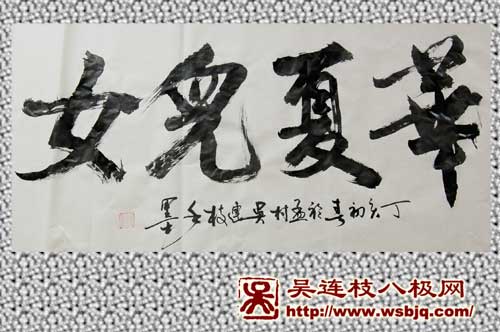 華夏兒女
丁亥初春於孟村吴連枝墨
吴连枝八极网
http://www.wsbjq.com